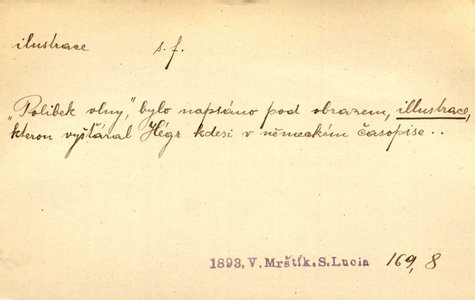 ilustrace s. f.
„Polibek vlny,“ bylo napsáno pod obrazem, illustrace,
kterou vyšťáral Hégr kdesi v německém časopise..
1893, V. Mrštík. S. Lucia 169, 8